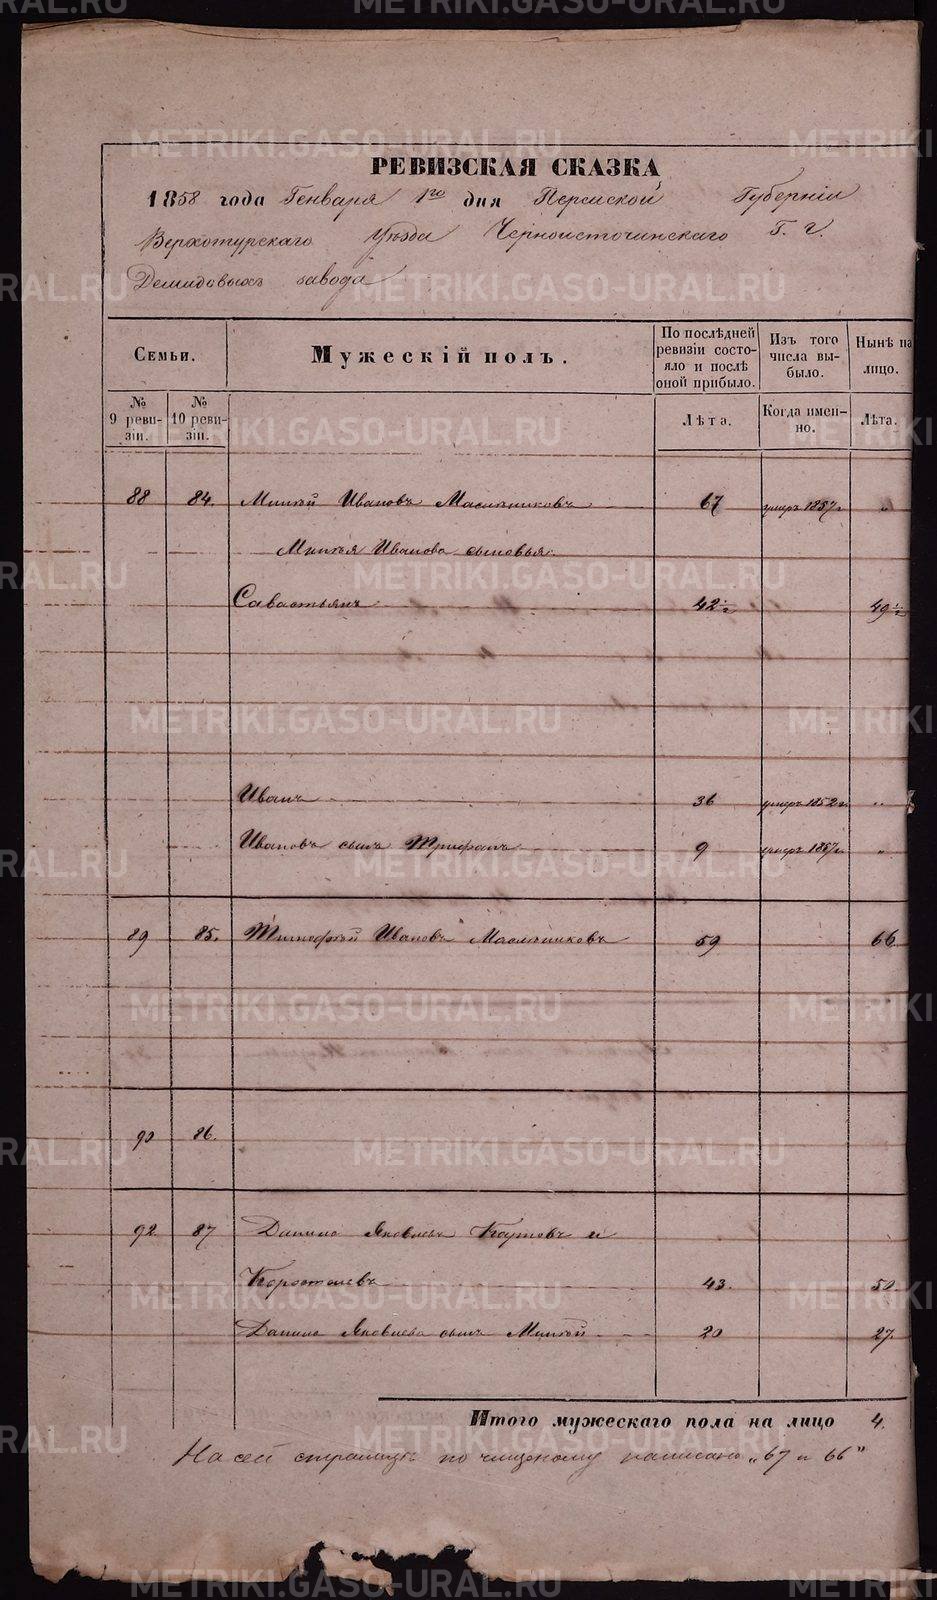 METRIKI.GASO-URAL.RU
РЕВИЗСКАЯ СКАЗКА
1858 года Генваря 1го дня Пермской Губернiи
Верхотурскаго Уѣзда Черноисточинскаго Г. г.
Демидовыхъ завода
Семьи. Мужескiй полъ. По послѣдней ревизiи состояло и послѣ оной прибыло. Изъ того числа выбыло. Нынѣ на лицо.
№ 9 ревизiи. № 10 ревизiи. Лѣта. Когда именно. Лѣта.
88 84. Михѣй Ивановъ Масленниковъ 67 умеръ 1857 г. "
Михѣя Иванова сыновья:
Савастьянъ 42 1/2 49 1/2
Иванъ 36 умеръ 1852 г. "
Ивановъ сынъ Трифонъ 9 умеръ 1857 г. "
89 85. Тимофей Ивановъ Масленниковъ 59 66
90 86.
92 87 Данило Яковлевъ и
Коростелевъ 43. 50.
Данила Яковлева сынъ Михѣй 20 27.
Итого мужескаго пола на лицо 4.
На сей страницѣ по чищеному написано „67 и 66"